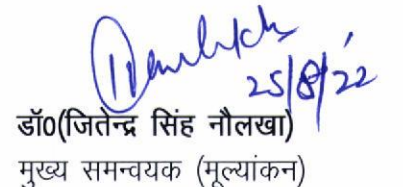 25/8/22
डॉ0(जितेन्द्र सिंह नौलखा)
मुख्य समन्वयक (मूल्यांकन)